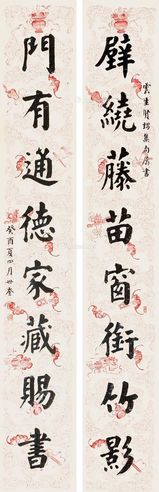 雲生賢姪集句屬書
壁繞藤苗窗銜竹影
門有通德家藏賜書
癸酉夏四月廿叁